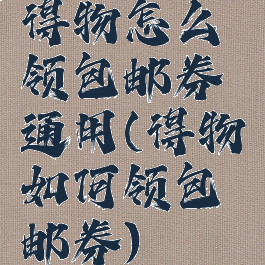 得物怎么
领包邮券
通用(得物
如何领包
邮券)